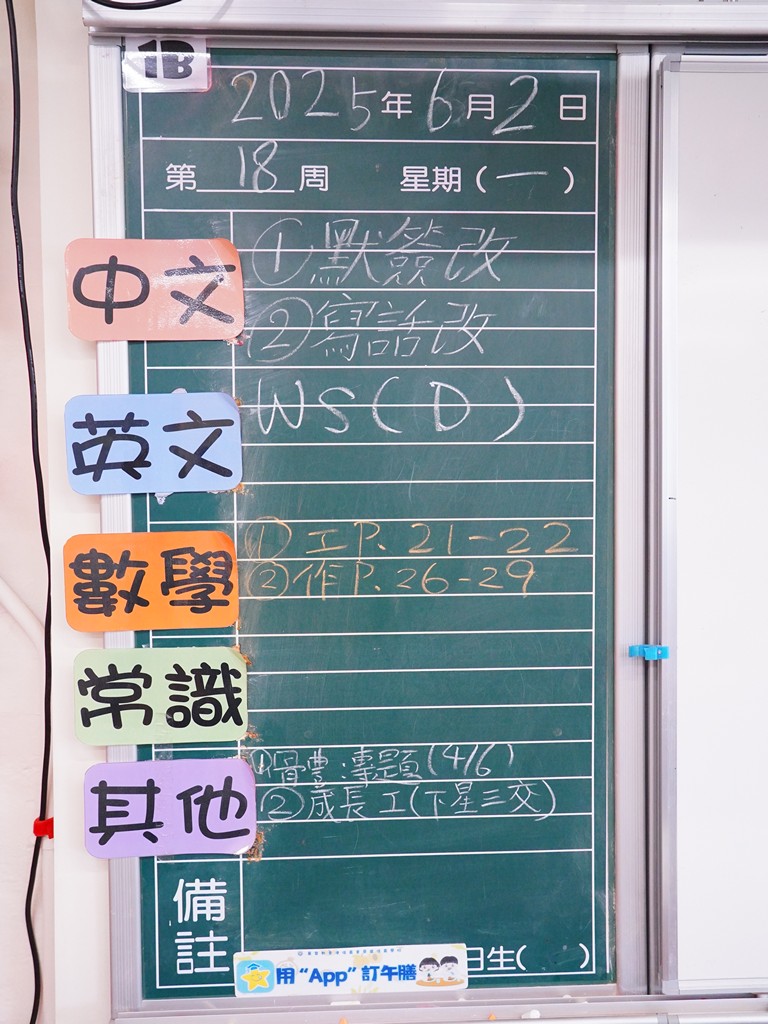 1B
2025年6月2日
第18周 星期(一)
中文
①默簽改
②寫話改
英文
WS(D)
數學
①工P.21-22
②作P.26-29
常識
其他
①體豐:專題(4/6)
②成長工(下星三交)
備註
日生( )
用“App”訂午膳